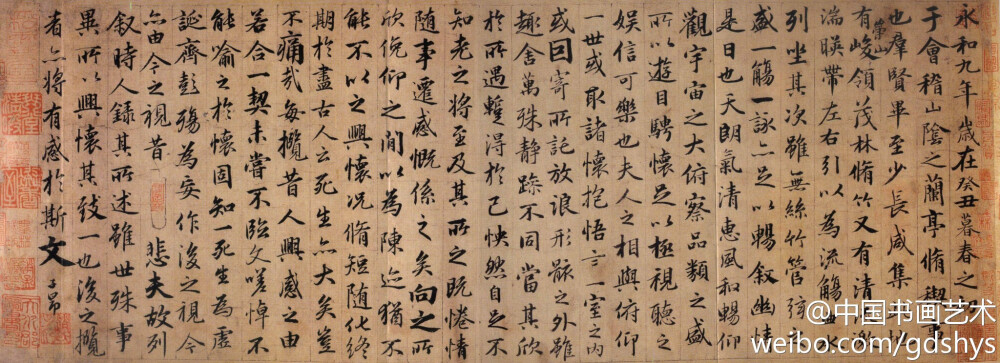 永和九年歲在癸丑暮春之
于會稽山陰之蘭亭脩禊事
也群賢畢至少長咸集
有崇山峻領茂林脩竹又有清流
湍暎帶左右引以為流觴曲水
列坐其次雖無絲竹管弦之
盛一觴一詠亦足以暢敘幽情
是日也天朗氣清惠風和暢仰
觀宇宙之大俯察品類之盛
所以遊目騁懷足以極視聽之
娛信可樂也夫人之相與俯仰
一世或取諸懷抱悟言一室之內
或因寄所託放浪形骸之外雖
趣舍萬殊靜躁不同當其欣
於所遇蹔得於己怏然自足不
知老之將至及其所之既惓情
隨事遷感慨係之矣向之所
欣俛仰之閒以為陳迹猶不
能不以之興懷況脩短隨化終
期於盡古人云死生亦大矣豈
不痛哉每攬昔人興感之由
若合一契未嘗不臨文嗟悼不
能喻之於懷固知一死生為虛
誕齊彭殤為妄作後之視今
亦由今之視昔 悲夫故列
敘時人錄其所述雖世殊事
異所以興懷其致一也後之攬
者亦將有感於斯文 子昂
@中国书画艺术
weibo.com/gdshys